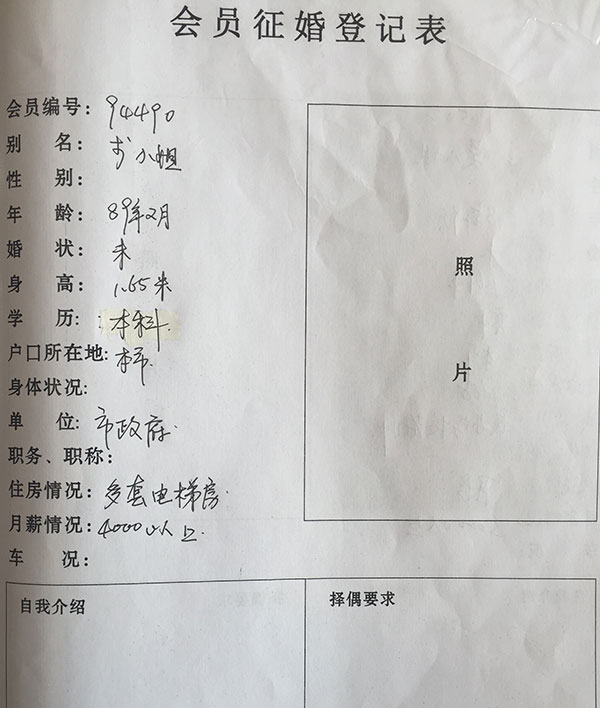 会员征婚登记表
会员编号: 94490
别 名: 小姐
性 别:
年 龄: 89年2月
婚 状: 未
身 高: 1.65米
学 历: 本科
户口所在地: 本市
身体状况:
单 位: 市政府
职务、职称:
住房情况: 多套电梯房
月薪情况: 4000以上
车 况:
照
片
自我介绍
择偶要求